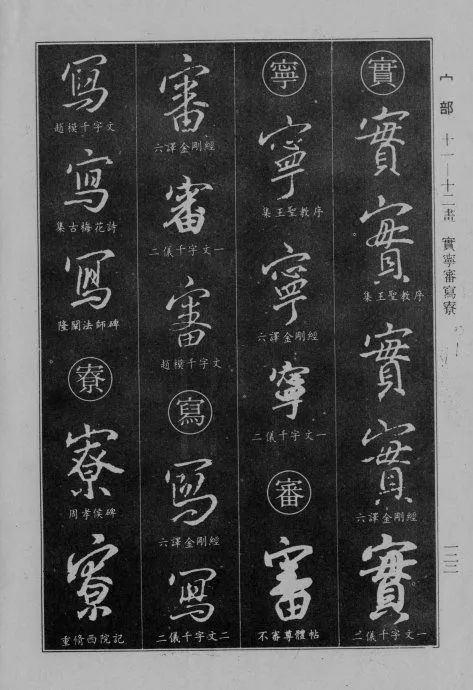 宀部 十一—十二畫 實寧審寫寮
實
實
實
集王聖教序
實
實
六譯金剛經
實
二儀千字文一
寧
寧
集王聖教序
寧
六譯金剛經
寧
二儀千字文一
審
審
不審尊體帖
審
六譯金剛經
審
二儀千字文一
審
趙模千字文
寫
寫
六譯金剛經
寫
二儀千字文二
寫
趙模千字文
寫
集古梅花詩
寫
隆闡法師碑
寮
寮
周孝侯碑
寮
重脩西院記
一二二